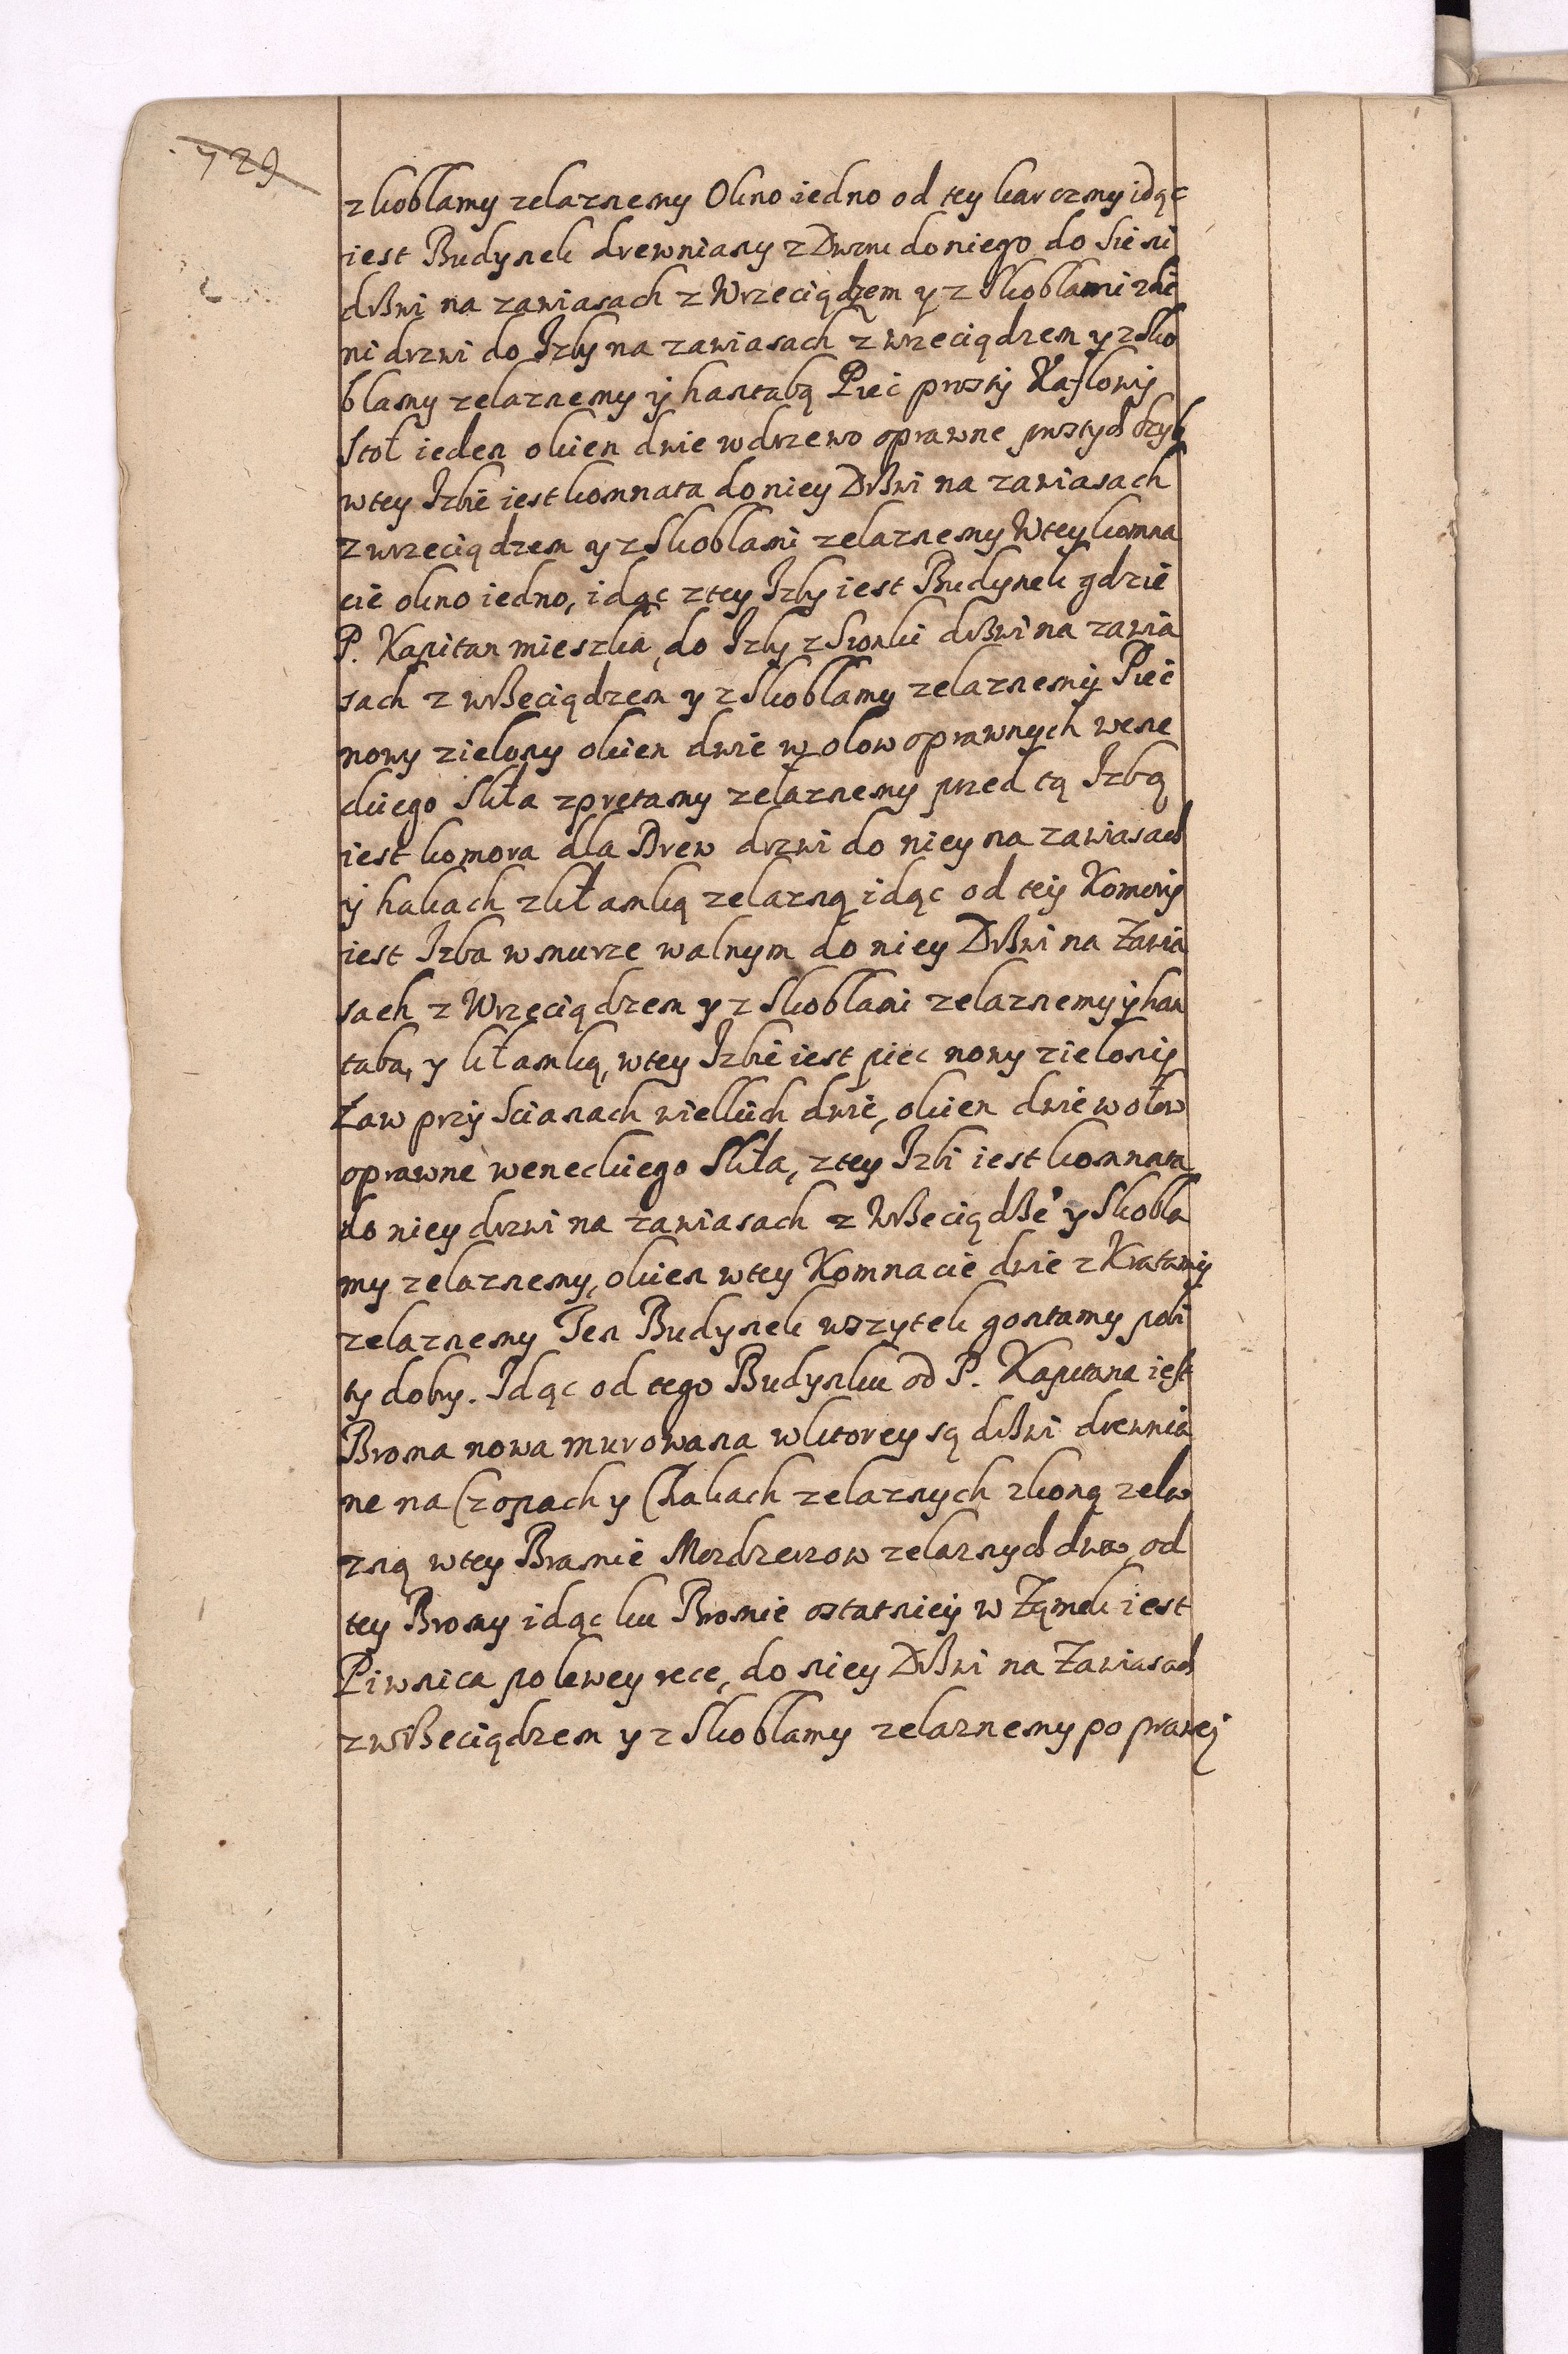 729
z koblamy zelaznemy Okno iedno od tey karczmy idąc
iest Budynek drewniany z Dwznu do niego do Sieni
drßwi na zawiasach z Wrzeciądzem y z Skoblami z Sie
ni drzwi do Izby na zawiasach z wrzeciądzem y z Sko
blamy zelaznemy ÿ hantabą Piec prostÿ Kaflowÿ
Stoł ieden okien dwie w drzewo oprawne prostych szyb
w tey Izbie iest komnata do niey Drßwi na zawiasach
z wrzeciądzem y z Skoblami zelaznemy W tey komna
cie okno iedno, idąc z tey Izby iest Budynek gdzie
P. Kapitan mieszka, do Izby z Sionki drßwi na zawia
sach z wrßeciądzem y z Skoblamy zelaznemÿ Piec
nowy zielony okien dwie w olow oprawnych wene
ckiego Skła z prętamy zelaznemy przed tą Izbą
iest komora dla Drew drzwi do niey na zawiasach
ÿ hakach z kłamką zelazną idąc od teÿ Komorÿ
iest Izba w murze walnym do niey Drßwi na Zawia
sach z Wrzeciądzem y z Skoblami zelaznemy ÿ han
taba, y kłamką, w tey Izbie iest piec nowy zielonÿ
Ław przÿ Scianach wielkich dwie, okien dwie w ołow
oprawne weneckiego Skła, z tey Izbi iest komnata
do niey drzwi na zawiasach z Wrßeciądßē y Skobla
my zelaznemy, okien w tey Komnacie dwie z Kratamÿ
zelaznemy Ten Budynek wszytek gontamy pobi
ty dobry. Idąc od tego Budynku od P. Kapitana iest
Brona nowa murowana w ktorey są drßwi drewnia
ne na Czopach y Chakach zelaznych z koną zela
zną w tey Bronie Mozdzerzow zelaznych dwa, od
tey Brony idąc ku Bronie ostatnieÿ w Zamek iest
Piwnica po lewey rece, do niey Drßwi na Zawiasach
z wrßeciądzem y z Skoblamy zelaznemy po prawej